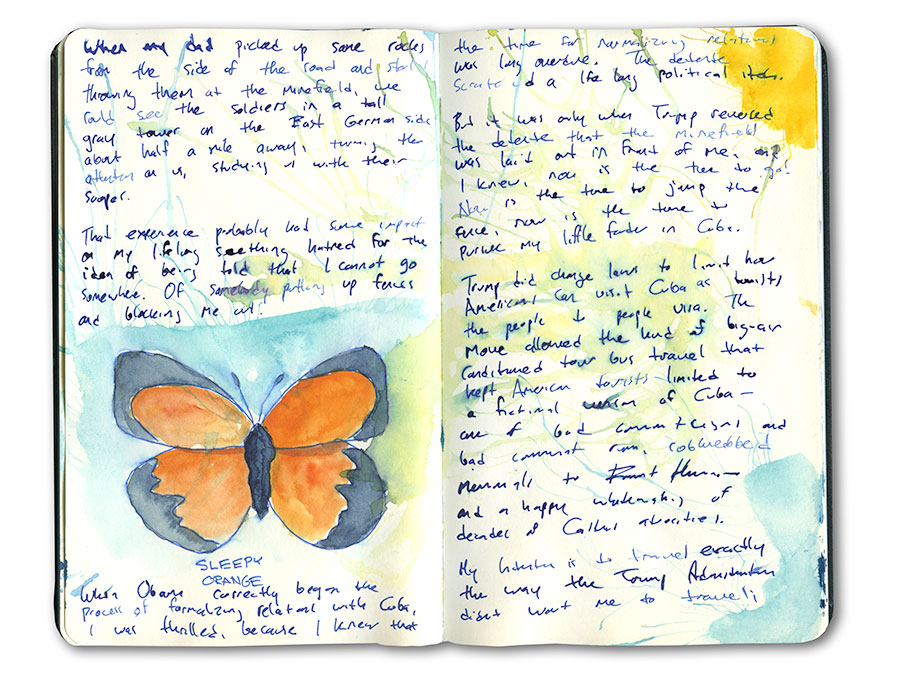 When my dad picked up some rocks
from the side of the road and
throwing them at the minefield, we
could see the soldiers in a tall
gray tower on the East German side
about half a mile away, turning their
attention on us, studying us with their
scopes.
That experience probably had some impact
on my lifelong seething hatred for the
idea of being told that I cannot go
somewhere. Of somebody putting up fences
and blocking me out.
SLEEPY
ORANGE
When Obama correctly began the
process of formalizing relations with Cuba,
I was thrilled, because I knew that
the time for normalizing relations
was long overdue. The detente
a life long political itch.
But it was only when Trump reversed
the detente that the minefield
was laid out in front of me, and
I knew, now is the time to go!
Now is the time to jump the
fence, now is the time to
pursue my little in Cuba.
Trump did change laws to limit how
Americans can visit Cuba as tourists
the people to people visa. The
move allowed the kind of big-air
conditioned tour bus travel that
kept American tourists limited to
a fictional version of Cuba —
one of bad and
bad communist rum, cobwebbed
memorials to
and a happy whitewashing of
decades of Castro's atrocities.
My intention is to travel exactly
the way the Trump Administration
didn't want me to travel: